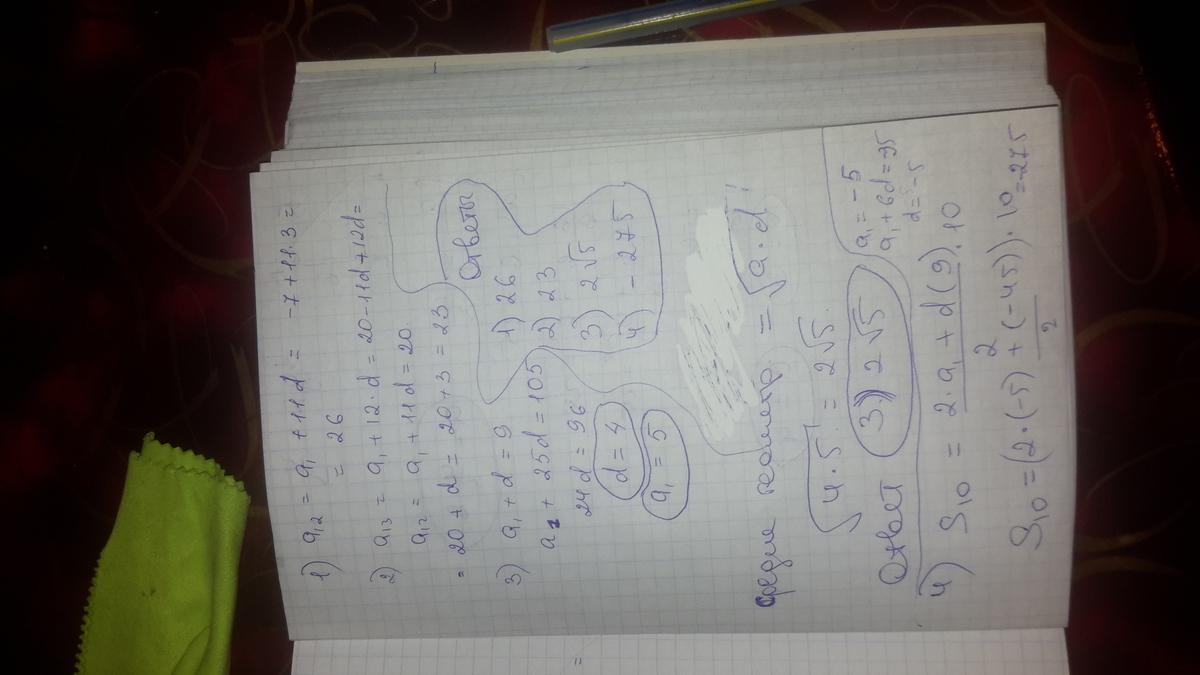 1) a₁₂ = a₁ + 11d = -7 + 11·3 =
= 26
2) a₁₃ = a₁ + 12·d = 20 - 11d + 12d =
a₁₂ = a₁ + 11d = 20
= 20 + d = 20 + 3 = 23
3) a₁ + d = 9
+ 25d = 105
24d = 96
d = 4
a₁ = 5
Ответы
1) 26
2) 23
3) 2√5
4) -275
Средне геометр. = √a·d !
√4·5 = 2√5
Ответ 3) 2√5
a₁ = -5
a₁ + 6d =
d = -5
4) S₁₀ = 2·a₁ + d(9) · 10
2
S₁₀ = (2·(-5) + (-45))·10 = -275
2